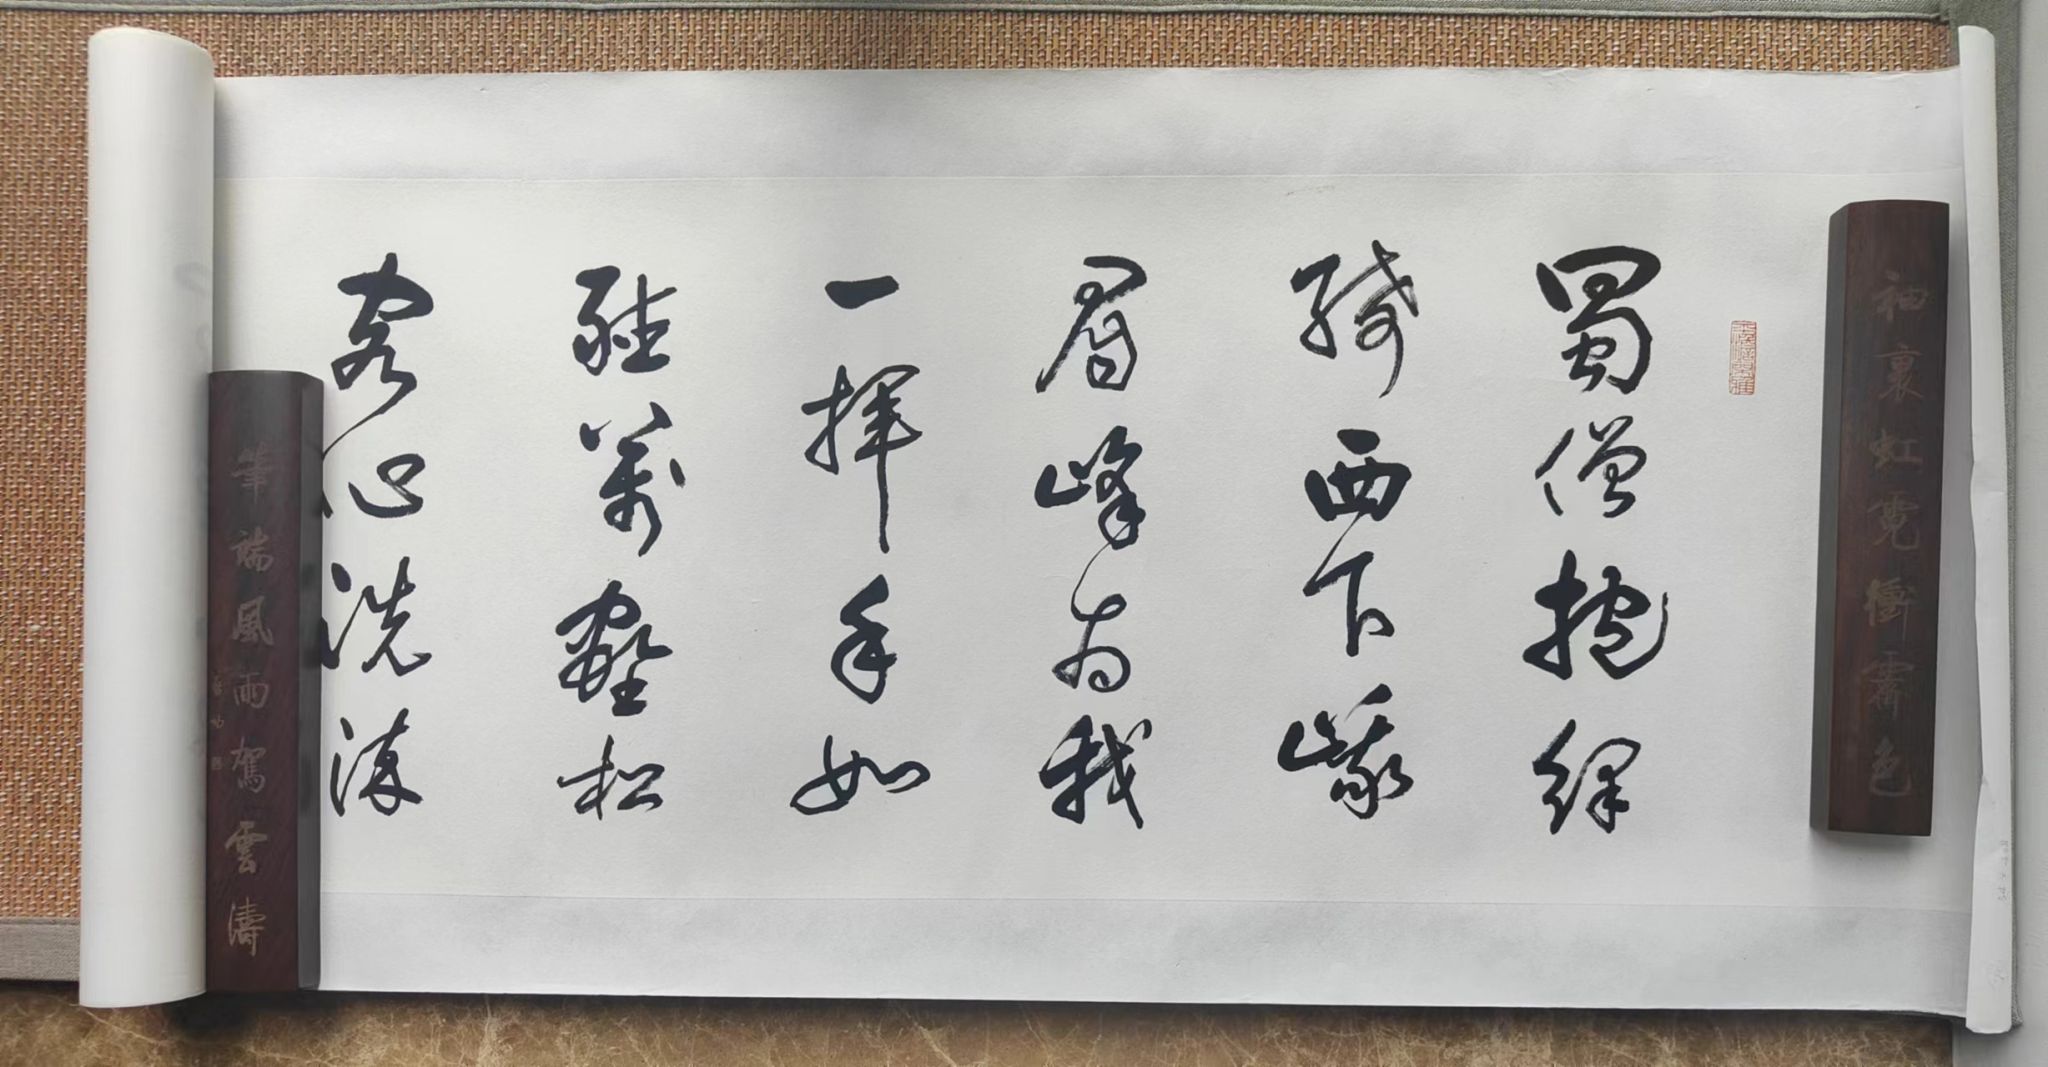 袖裏虹霓衝霽色
蜀僧抱綠
綺西下峨
眉峰為我
一揮手如
聽萬壑松
客心洗流
筆端風雨駕雲濤